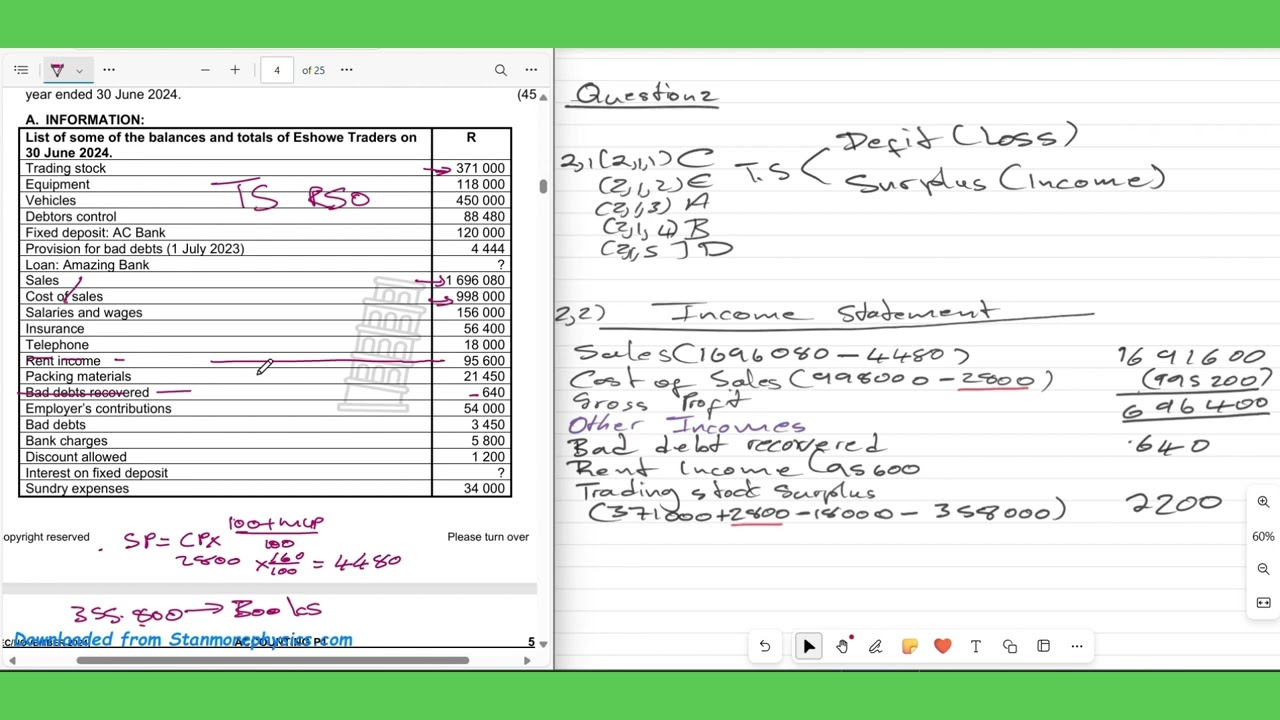 4 of 25
year ended 30 June 2024. (45
A. INFORMATION:
List of some of the balances and totals of Eshowe Traders on 30 June 2024. R
Trading stock 371 000
Equipment 118 000
Vehicles 450 000
TS RSO
Debtors control 88 480
Fixed deposit: AC Bank 120 000
Provision for bad debts (1 July 2023) 4 444
Loan: Amazing Bank ?
Sales 1 696 080
Cost of sales 998 000
Salaries and wages 156 000
Insurance 56 400
Telephone 18 000
Rent income 95 600
Packing materials 21 450
Bad debts recovered 640
Employer's contributions 54 000
Bad debts 3 450
Bank charges 5 800
Discount allowed 1 200
Interest on fixed deposit ?
Sundry expenses 34 000
opyright reserved Please turn over
SP = CPx 100+MUP
100
2800 x 160 = 4480
100
355.800 → Books
Downloaded from Stanmorephysics.com
EC/NOVEMBER 2024 ACCOUNTING P1 5
Question 2
2,1 (2,1,1) C
(2,1,2) E
(2,1,3) A
(2,1,4) B
(2,1,5) D
T.S
Defit (Loss)
Surplus (Income)
2,2) Income Statement
Sales (1696080 - 4480) 1691600
Cost of Sales (998000 - 2800) (995200)
Gross Profit 696400
Other Incomes
Bad debt recovered 640
Rent Income (95600
Trading stock Surplus
(371000+2800-18000-358000) 2200
60%